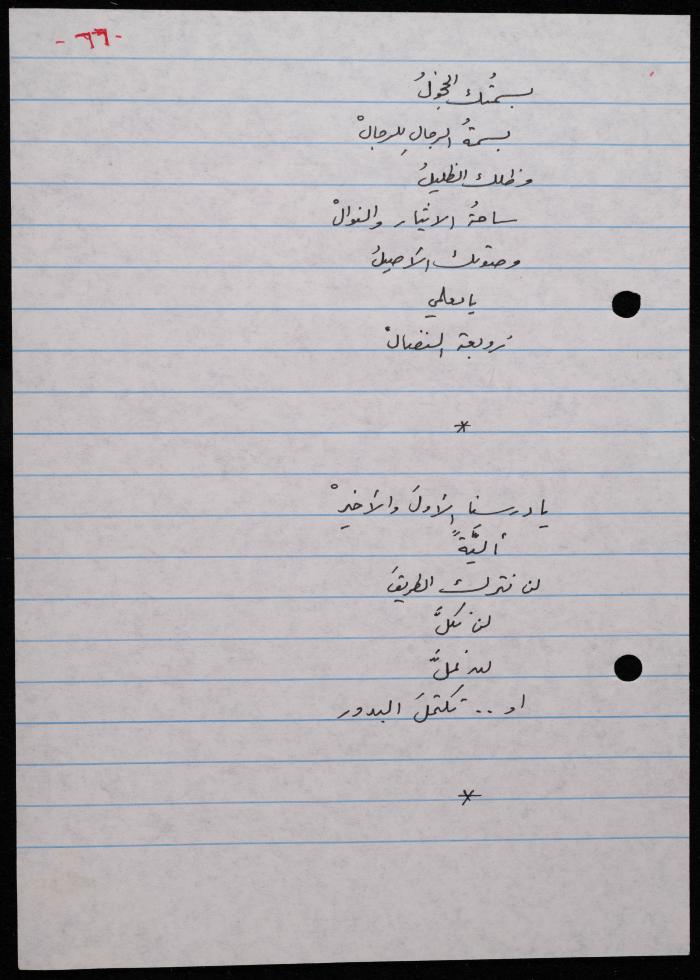 -٦٦-
بسمتُك الخجولُ
بسمةُ الرجالِ للرجالْ
وظلك الظليلُ
ساحةُ الايثار والنوالْ
وصوتك الأصيلُ
يا معلمي
زوبعة النضالْ
*
يا درسنا الأولَ والأخيرْ
أليَّةً
لن نترك الطريقَ
لن نكلَّ
لن نملَّ
او .. تكتملَ البدور
*